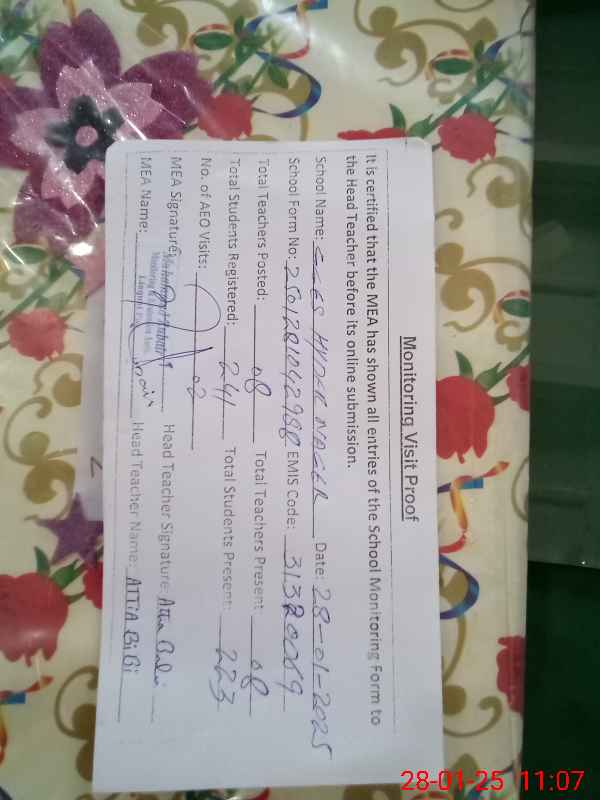 Monitoring Visit Proof
It is certified that the MEA has shown all entries of the School Monitoring Form to
the Head Teacher before its online submission.
School Name: GGES HYDER NAGER Date: 28-01-2025
School Form No: EMIS Code: 31320059
Total Teachers Posted: 08 Total Teachers Present: 08
Total Students Registered: 241 Total Students Present: 223
No. of AEO Visits: 02
MEA Signature: Head Teacher Signature: Attia Bibi
MEA Name: Head Teacher Name: ATTIA BiBi
28-01-25 11:07